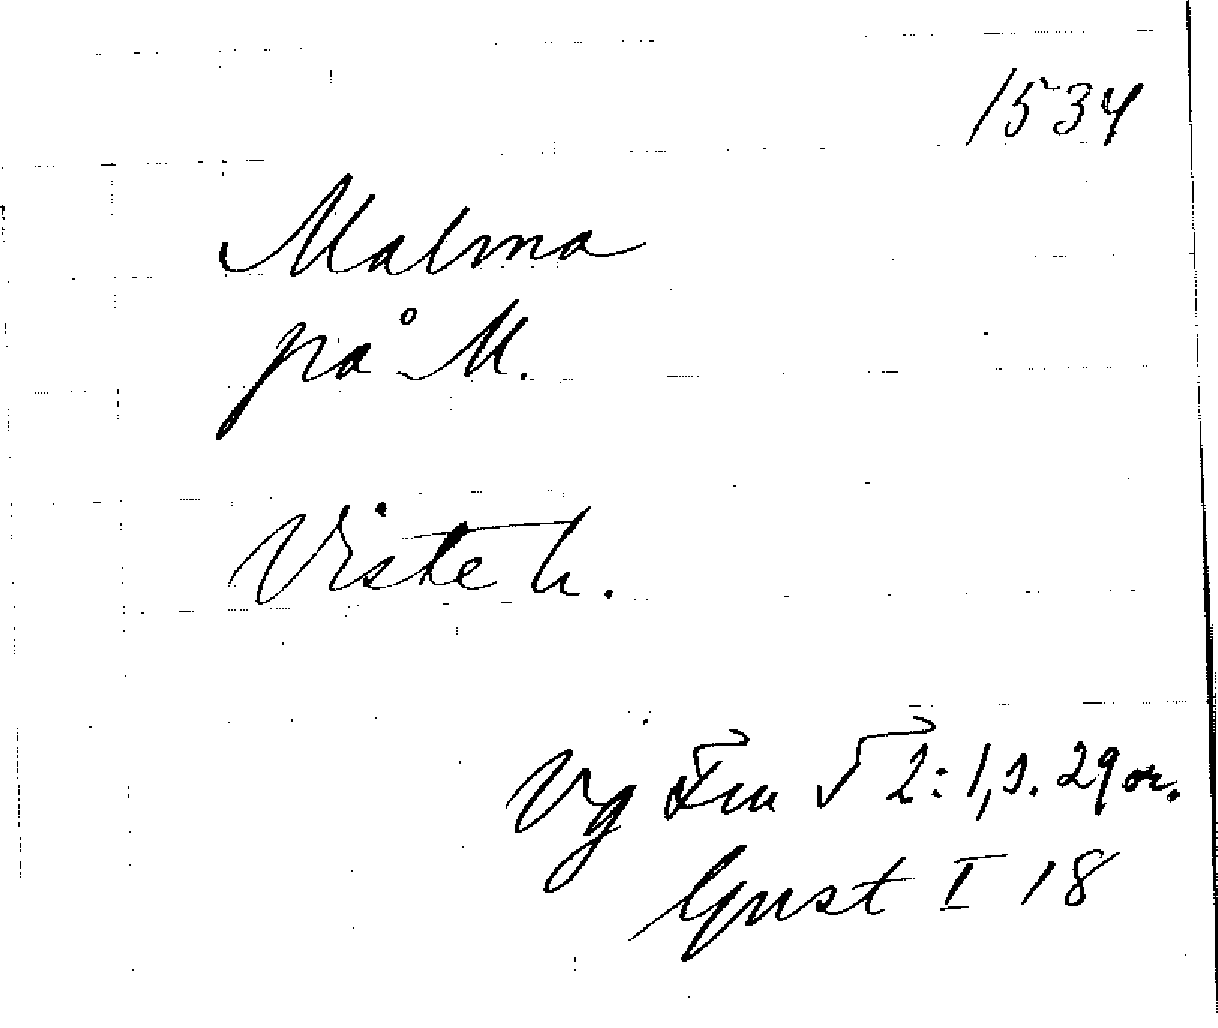 1534
Malma
på M.
Viste h.
Vg Fsu T 2:1, s. 29 or.
Gust I 18